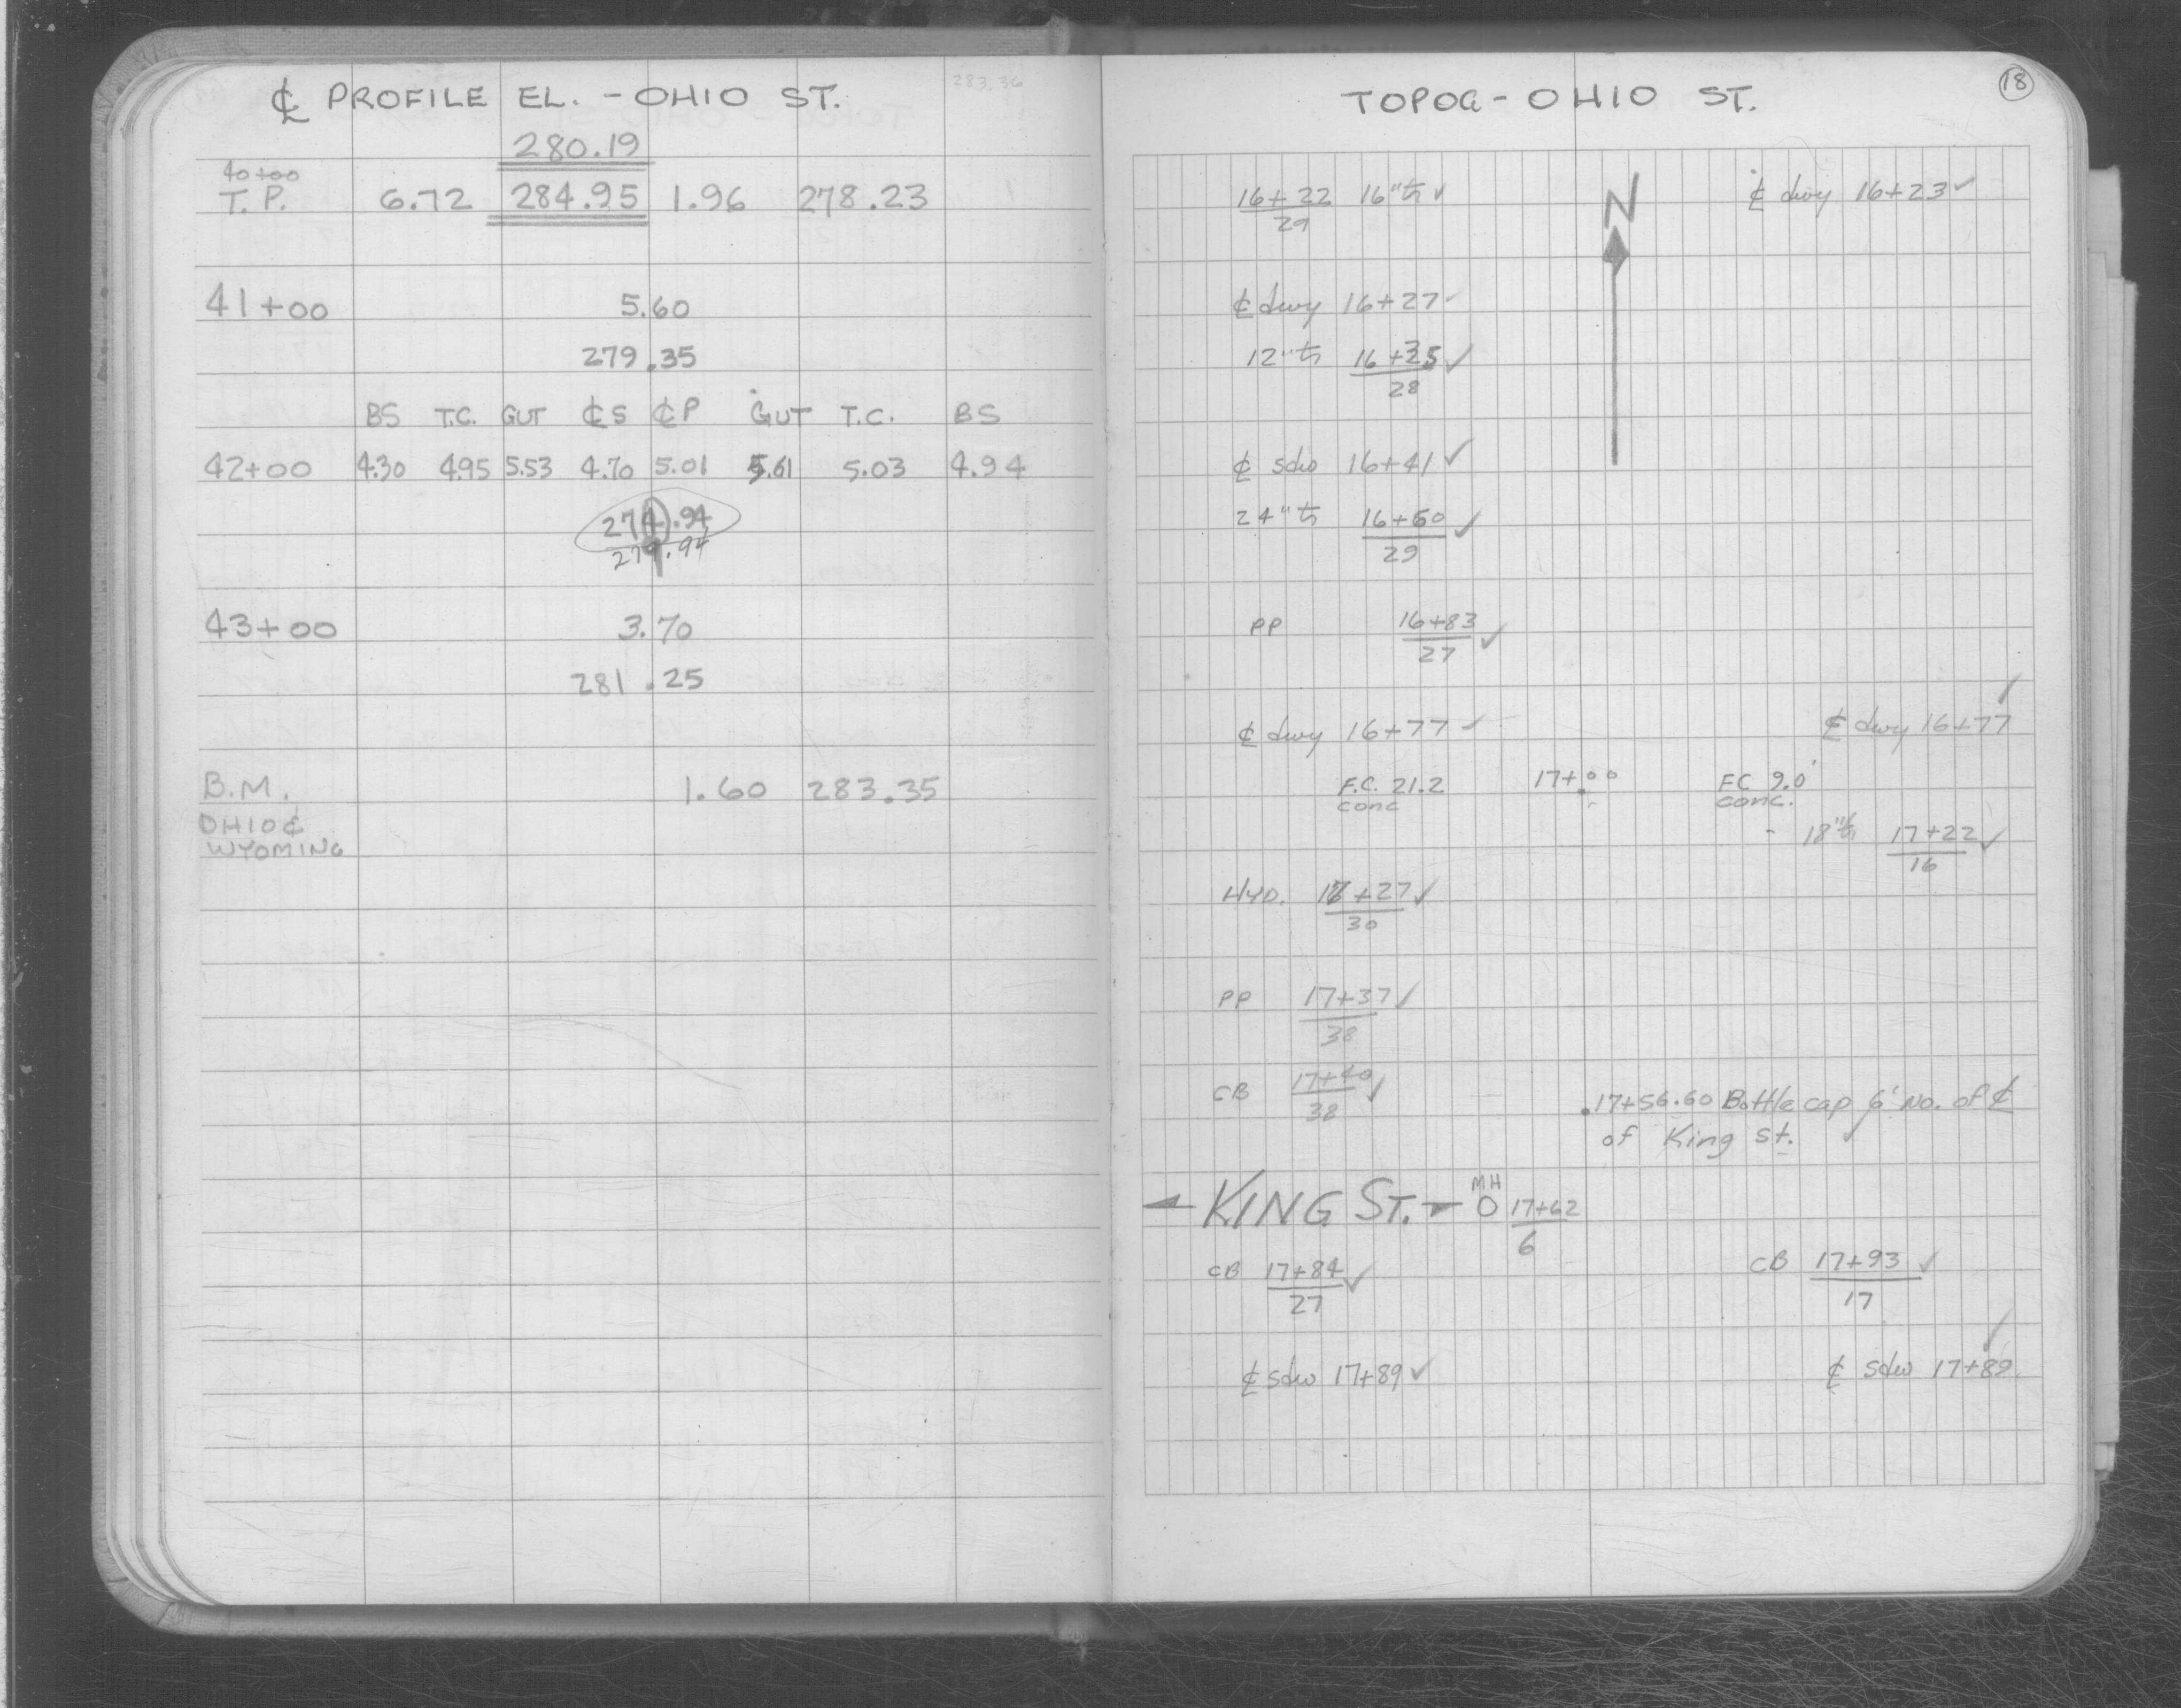 ℄ PROFILE EL. - OHIO ST. 283.36
280.19
40+00
T.P. 6.72 284.95 1.96 278.23
41+00 5.60
279.35
BS T.C. GUT ℄S ℄P GUT T.C. BS
42+00 4.30 4.95 5.53 4.70 5.01 5.61 5.03 4.94
274.94
279.94
43+00 3.70
281.25
B.M. 1.60 283.35
OHIO &
WYOMING
18
TOPOG - OHIO ST.
16+22 16" tr ✓ N ℄ dwy 16+23 ✓
29
℄ dwy 16+27 ✓
12" tr 16+35 ✓
28
℄ sdw 16+41 ✓
24" tr 16+60 ✓
29
PP 16+83 ✓
27
℄ dwy 16+77 ✓ ℄ dwy 16+77 ✓
F.C. 21.2 17+00 FC 9.0'
conc conc.
18" tr 17+22 ✓
16
HYD. 17+27 ✓
30
PP 17+37 ✓
38
CB 17+40 ✓
38
17+56.60 Bottle cap 6' No. of ℄
of King St. ✓
KING ST. MH
O 17+62
6
CB 17+84 ✓ CB 17+93 ✓
27 17
℄ sdw 17+89 ✓ ℄ sdw 17+89 ✓